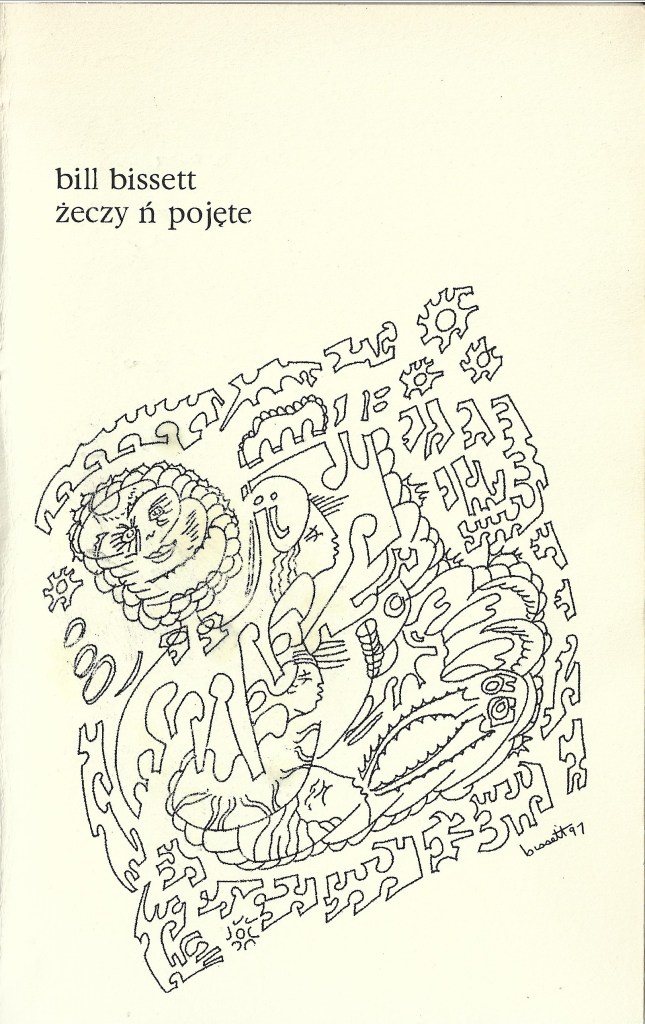 bill bissett
żeczy ń pojęte
bissett 97